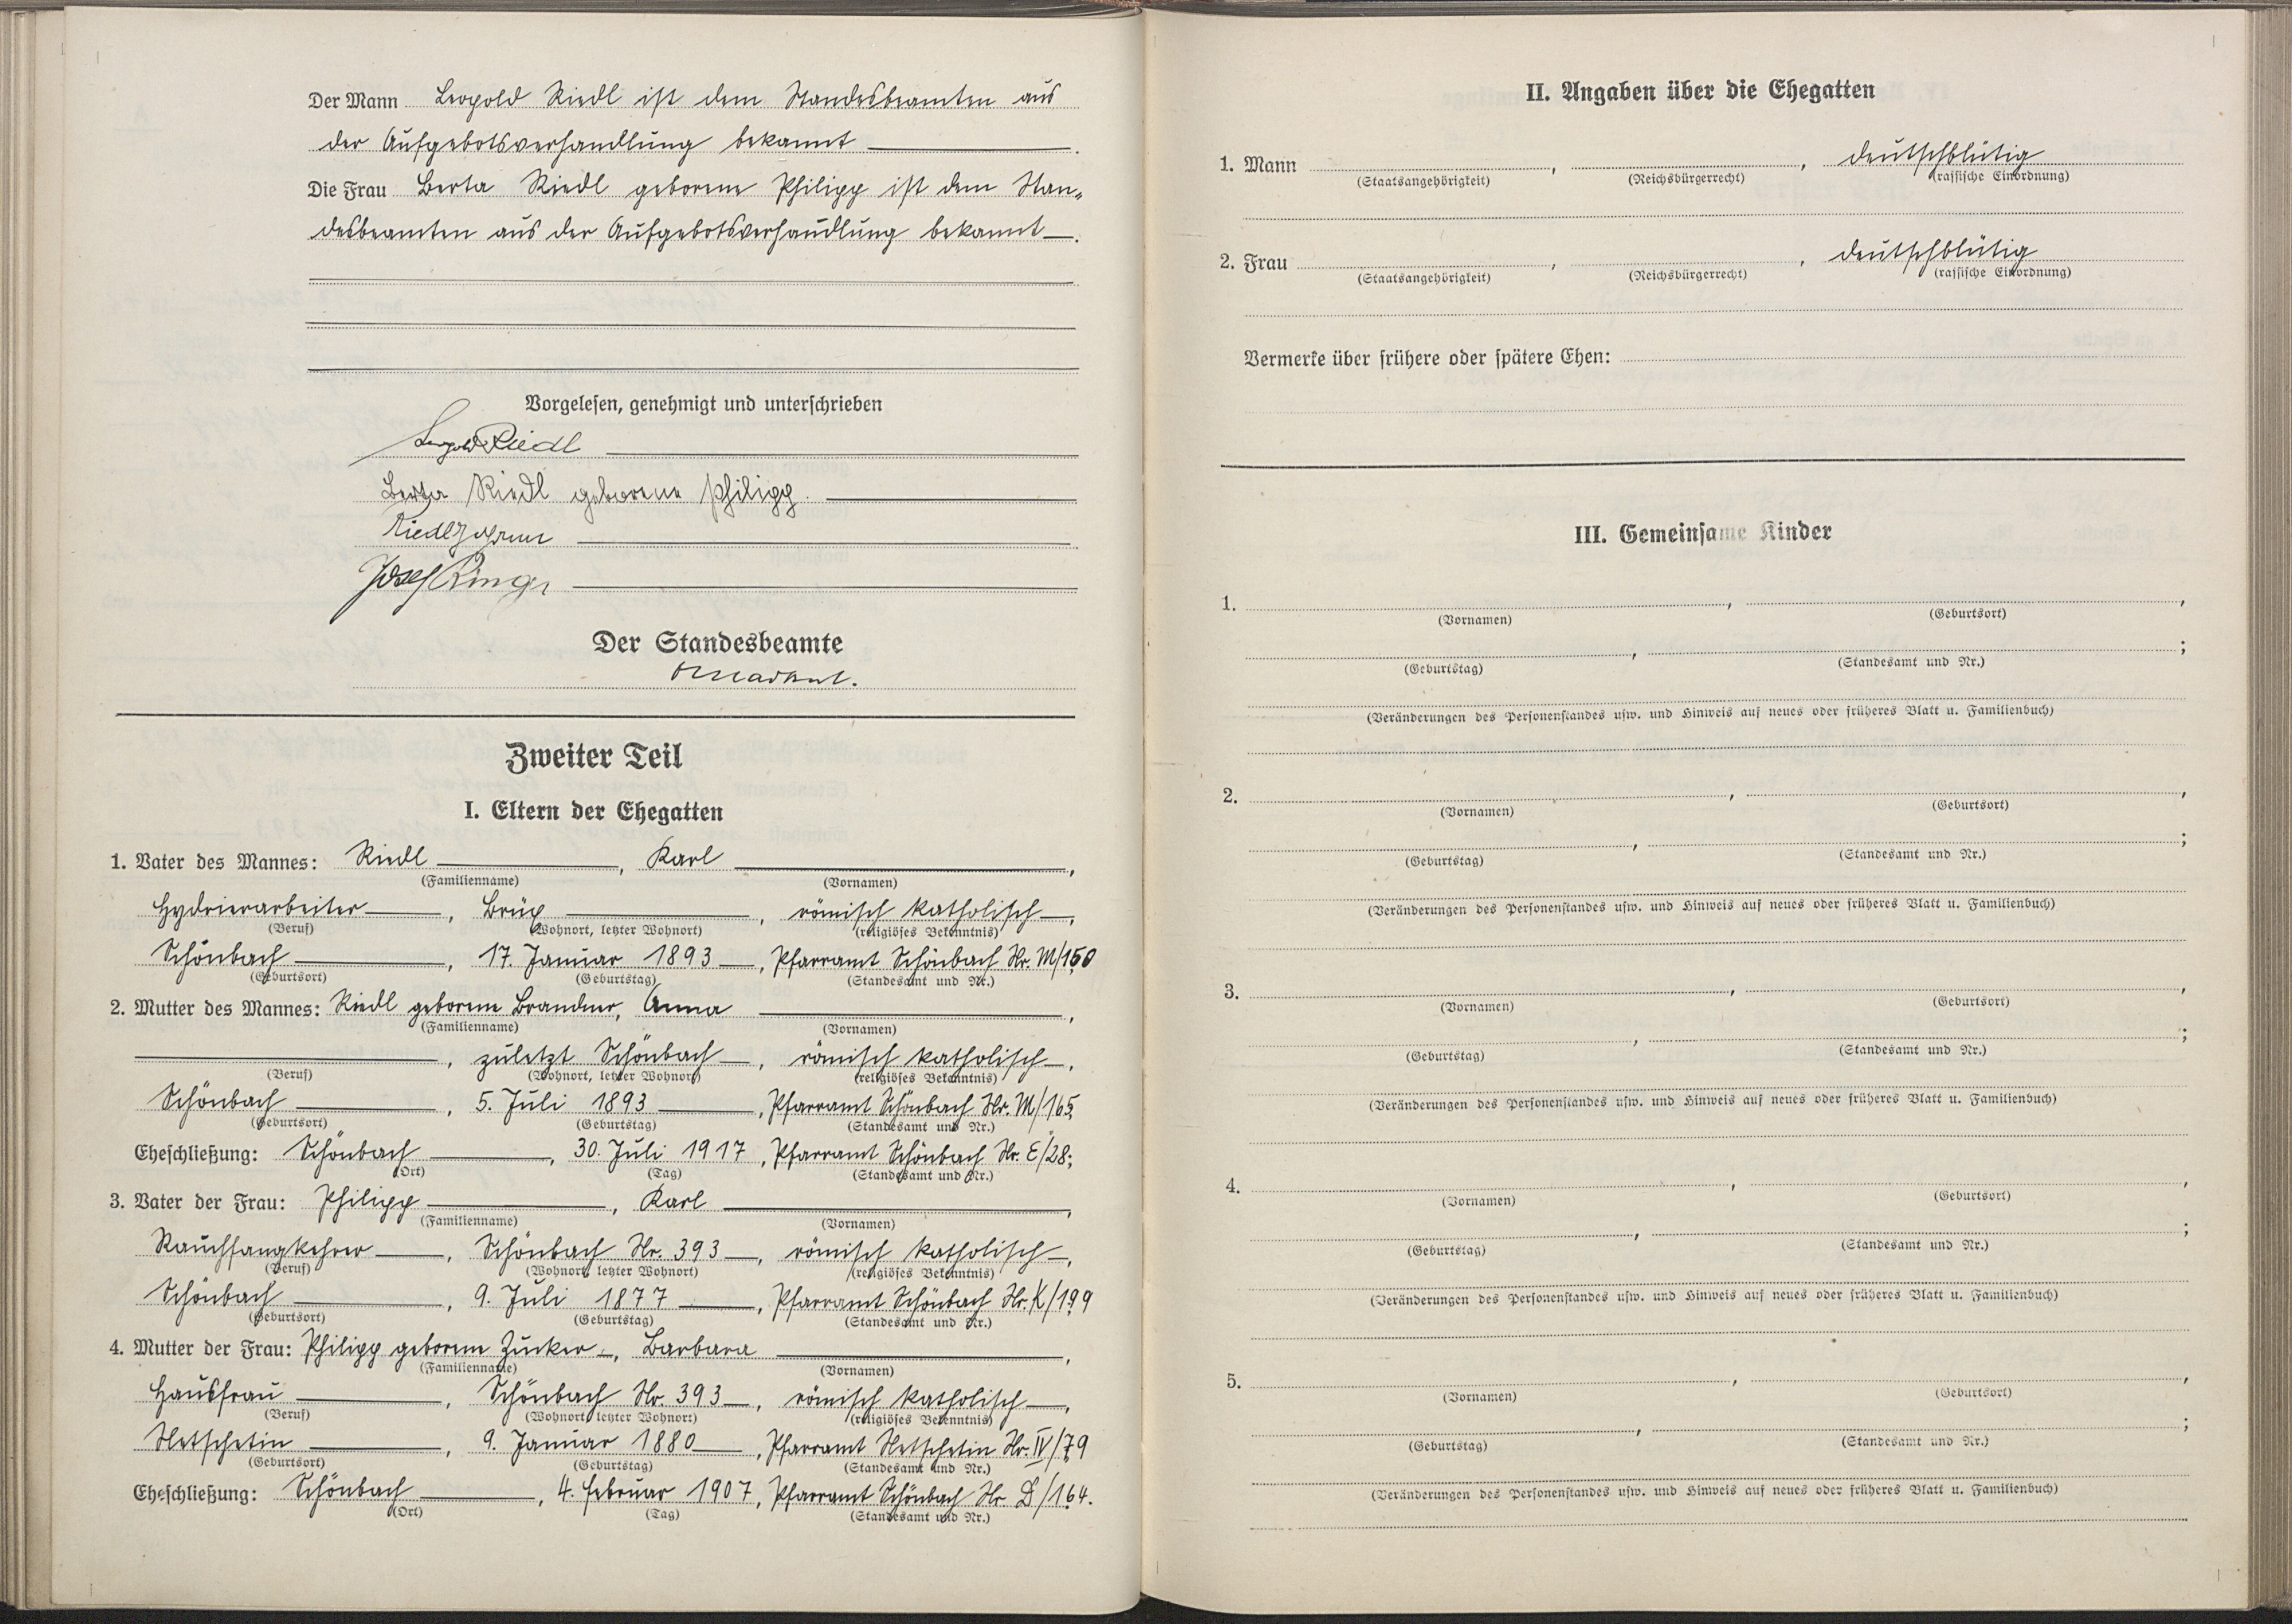 Der Mann Leopold Riedl ist dem Standesbeamten aus
der Aufgebotsverhandlung bekannt.
Die Frau Berta Riedl geborene Philipp ist dem Stan„
desbeamten aus der Aufgebotsverhandlung bekannt.
Vorgelesen, genehmigt und unterschrieben
Leopold Riedl
Berta Riedl geborene Philipp.
Riedl Johann
Josef
Der Standesbeamte
Zweiter Teil
I. Eltern der Ehegatten
1. Vater des Mannes: Riedl, Karl,
(Familienname) (Vornamen)
Hydrierarbeiter, Brüx, römisch katholisch,
(Beruf) (Wohnort, letzter Wohnort) (religiöses Bekenntnis)
Schönbach, 17. Januar 1893, Pfarramt Schönbach Nr. M/150
(Geburtsort) (Geburtstag) (Standesamt und Nr.)
2. Mutter des Mannes: Riedl geborene Brandner, Anna,
(Familienname) (Vornamen)
, zuletzt Schönbach, römisch katholisch,
(Beruf) (Wohnort, letzter Wohnort) (religiöses Bekenntnis)
Schönbach, 5. Juli 1893, Pfarramt Schönbach Nr. M/165,
(Geburtsort) (Geburtstag) (Standesamt und Nr.)
Eheschließung: Schönbach, 30. Juli 1917, Pfarramt Schönbach Nr. E/28;
(Ort) (Tag) (Standesamt und Nr.)
3. Vater der Frau: Philipp, Karl,
(Familienname) (Vornamen)
Rauchfangkehrer, Schönbach Nr. 393, römisch katholisch,
(Beruf) (Wohnort, letzter Wohnort) (religiöses Bekenntnis)
Schönbach, 9. Juli 1877, Pfarramt Schönbach Nr. K/199
(Geburtsort) (Geburtstag) (Standesamt und Nr.)
4. Mutter der Frau: Philipp geborene Zucker, Barbara,
(Familienname) (Vornamen)
Hausfrau, Schönbach Nr. 393, römisch katholisch,
(Beruf) (Wohnort, letzter Wohnort) (religiöses Bekenntnis)
Netschetin, 9. Januar 1880, Pfarramt Netschetin Nr. IV/79
(Geburtsort) (Geburtstag) (Standesamt und Nr.)
Eheschließung: Schönbach, 4. Februar 1907, Pfarramt Schönbach Nr. D/164.
(Ort) (Tag) (Standesamt und Nr.)
II. Angaben über die Ehegatten
1. Mann , , deutschblütig
(Staatsangehörigkeit) (Reichsbürgerrecht) (rassische Einordnung)
2. Frau , , deutschblütig
(Staatsangehörigkeit) (Reichsbürgerrecht) (rassische Einordnung)
Vermerke über frühere oder spätere Ehen:
III. Gemeinsame Kinder
1. , ,
(Vornamen) (Geburtsort)
, ;
(Geburtstag) (Standesamt und Nr.)
(Veränderungen des Personenstandes usw. und Hinweis auf neues oder früheres Blatt u. Familienbuch)
2. , ,
(Vornamen) (Geburtsort)
, ;
(Geburtstag) (Standesamt und Nr.)
(Veränderungen des Personenstandes usw. und Hinweis auf neues oder früheres Blatt u. Familienbuch)
3. , ,
(Vornamen) (Geburtsort)
, ;
(Geburtstag) (Standesamt und Nr.)
(Veränderungen des Personenstandes usw. und Hinweis auf neues oder früheres Blatt u. Familienbuch)
4. , ,
(Vornamen) (Geburtsort)
, ;
(Geburtstag) (Standesamt und Nr.)
(Veränderungen des Personenstandes usw. und Hinweis auf neues oder früheres Blatt u. Familienbuch)
5. , ,
(Vornamen) (Geburtsort)
, ;
(Geburtstag) (Standesamt und Nr.)
(Veränderungen des Personenstandes usw. und Hinweis auf neues oder früheres Blatt u. Familienbuch)